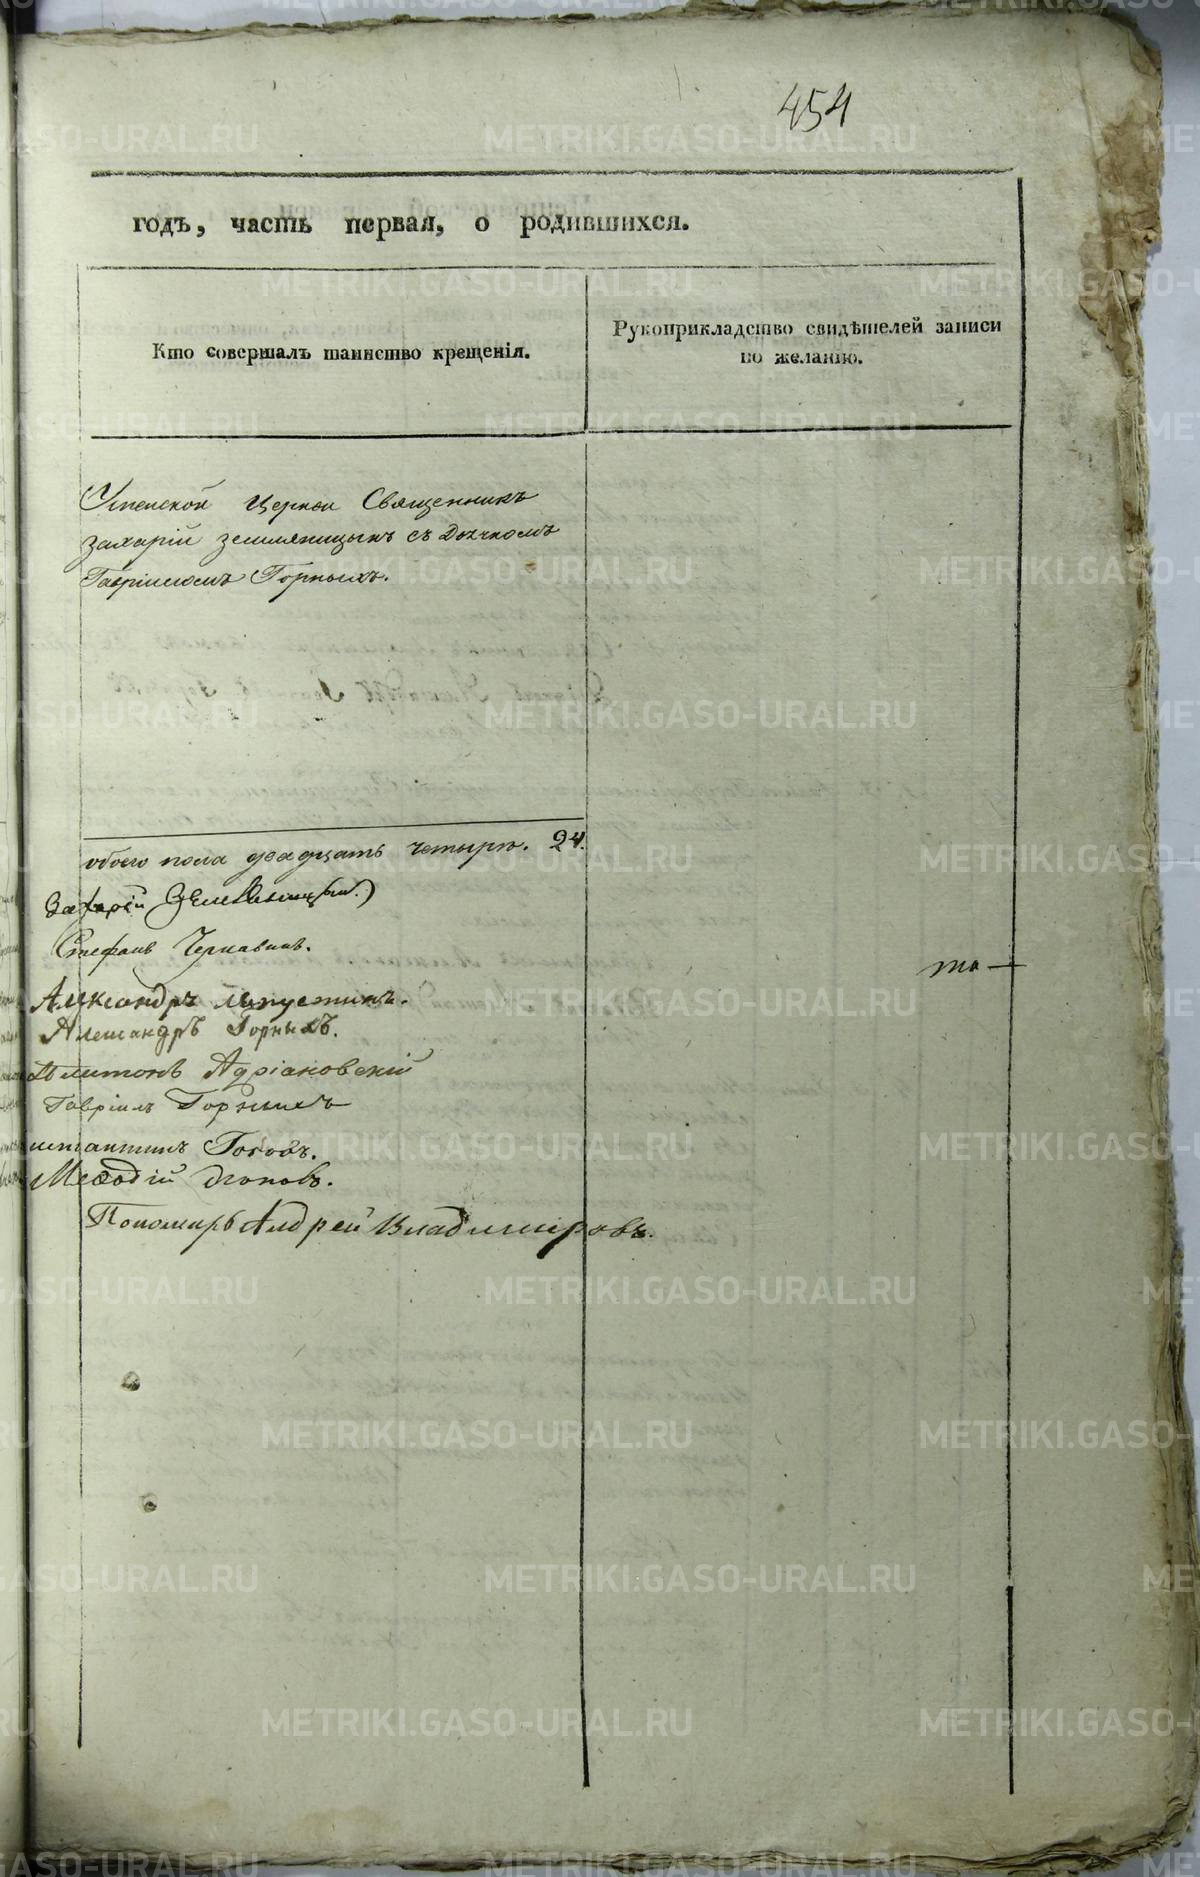 454
годъ, часть первая, о родившихся.
Кто совершалъ таинство крещенія.
Рукоприкладство свидѣтелей записи
по желанію.
Успенской Церкви Священникъ
Захарій Земляницынъ съ Дьячкомъ
Гавріиломъ Горныхъ.
обоего пола двадцать четыре. 24.
Захарій Земляницынъ
Стефанъ Чернавинъ.
Александръ Лепустинъ.
Александръ Горныхъ.
Адріановскій
Гавріилъ Горныхъ
Меѳодій
Пономарь Андрей Владимировъ.
та —
METRIKI.GASO-URAL.RU